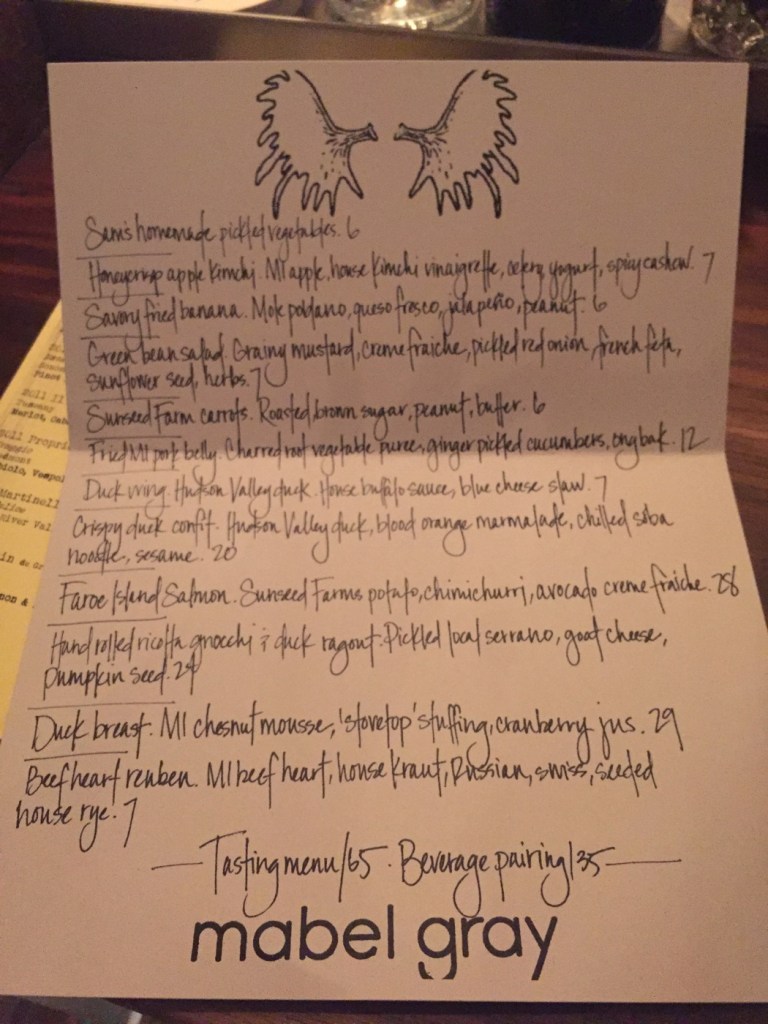 Sam's homemade pickled vegetables. 6
Honeycrisp apple kimchi. MI apple, house kimchi vinaigrette, celery yogurt, spicy cashew. 7
Savory fried banana. Mole poblano, queso fresco, jalapeño, peanut. 6
Green bean salad. Grainy mustard, creme fraiche, pickled red onion, french feta,
sunflower seed, herbs. 7
Sunseed Farm carrots. Roasted, brown sugar, peanut, butter. 6
Fried MI pork belly. Charred root vegetable puree, ginger pickled cucumbers, ong bak. 12
Duck wing. Hudson Valley duck. House buffalo sauce, blue cheese slaw. 7
Crispy duck confit. Hudson Valley duck, blood orange marmalade, chilled soba
noodle, sesame. 20
Faroe Island Salmon. Sunseed Farms potato, chimichurri, avocado creme fraiche. 28
Hand rolled ricotta gnocchi & duck ragout. Pickled local serrano, goat cheese,
pumpkin seed. 24
Duck breast. MI chesnut mousse, 'stovetop' stuffing, cranberry jus. 29
Beef heart reuben. MI beef heart, house kraut, Russian, swiss, seeded
house rye. 7
— Tasting menu/65 · Beverage pairing/35 —
mabel gray